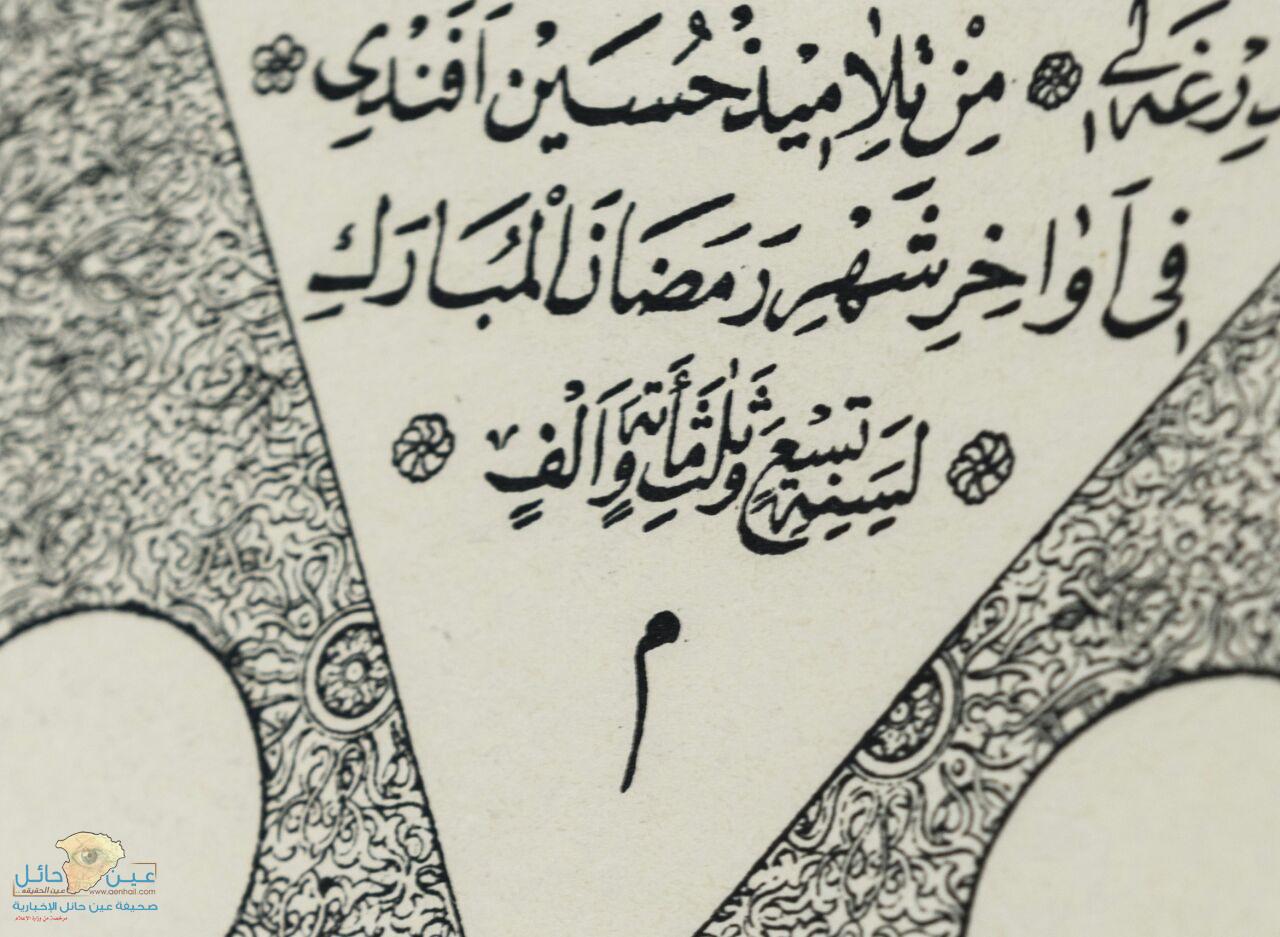 دِرْغَه لِي مِنْ تَلَامِيذِ حُسَيْن اَفَنْدِي
فِى اَوَاخِرِ شَهْرِ رَمَضَانَ الْمُبَارَكِ
لِسَنَةِ تِسْعٍ وَثَلٰثِمِأَتَةٍ وَاَلْفٍ
م
عين حائل
عين الحقيقه..
www.aenhail.com
صحيفة عين حائل الإخبارية
مرخصة من وزارة الاعلام